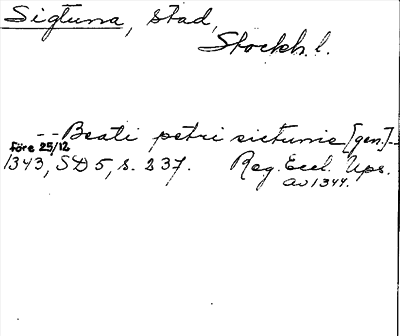 Sigtuna, stad,
Stockh. l.
-- Beati petri sictunie [gen.] --
före 25/12
1343, SD 5, s. 237. Reg. Eccl. Ups.
av 1344.